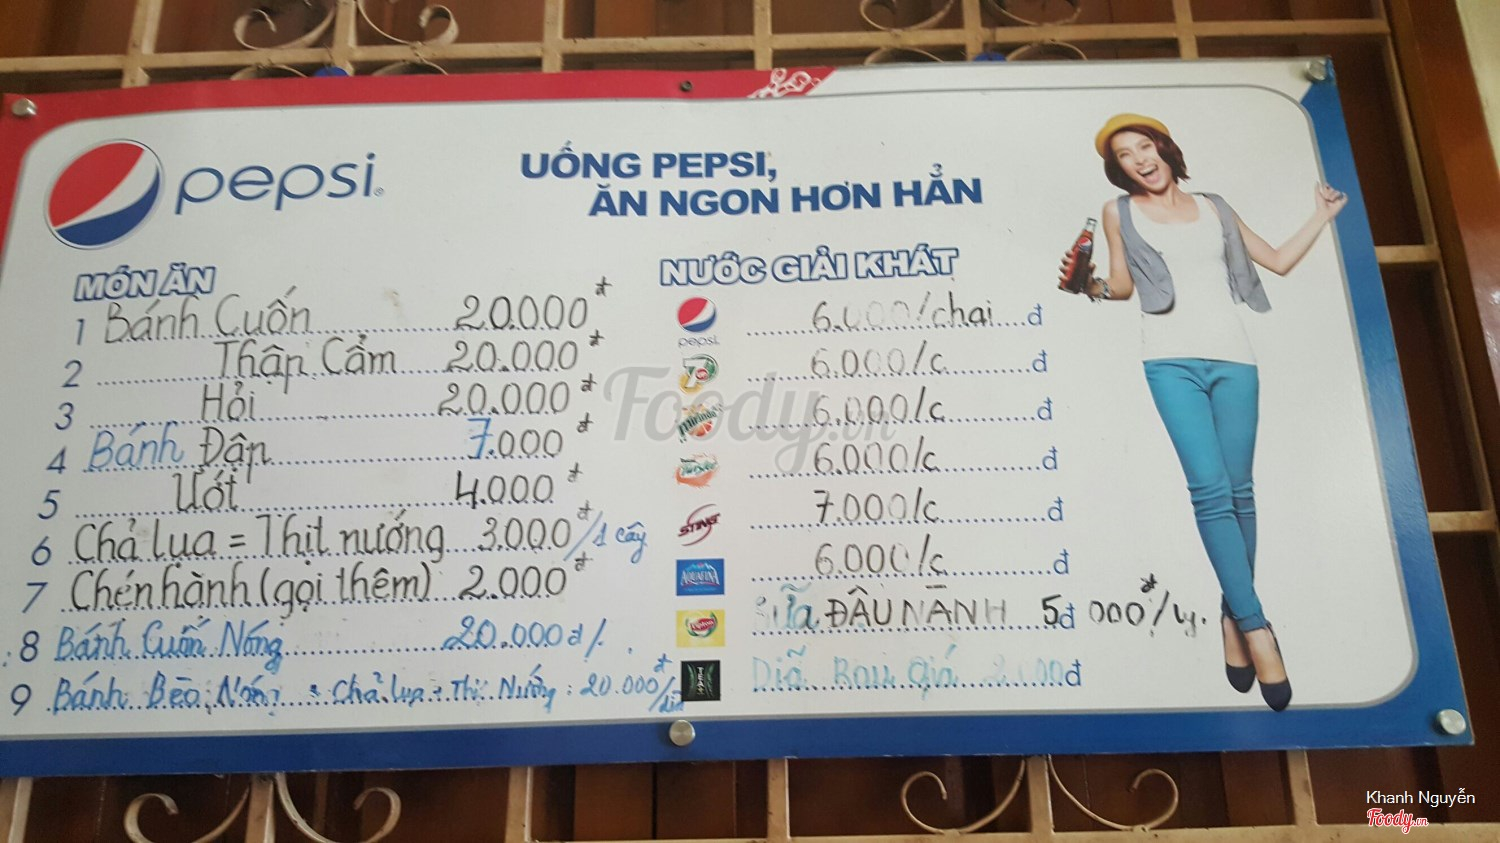 pepsi
UỐNG PEPSI,
ĂN NGON HƠN HẲN
MÓN ĂN
1 Bánh Cuốn 20.000đ
2 Thập Cẩm 20.000đ
3 Hỏi 20.000đ
4 Bánh Đập 7.000đ
5 Ướt 4.000đ
6 Chả lụa = Thịt nướng 3.000đ/1 cây
7 Chén hành (gọi thêm) 2.000đ
8 Bánh Cuốn Nóng 20.000đ/
9 Bánh Bèo Nóng + Chả lụa + Thịt Nướng: 20.000đ/dĩa
NƯỚC GIẢI KHÁT
pepsi 6.000/chai đ
7up 6.000/c đ
Mirinda 6.000/c đ
Twister 6.000/c đ
STING 7.000/c đ
AQUAFINA 6.000/c đ
Lipton Sữa ĐẬU NÀNH 5đ 000đ/ly.
TEA+ Diã Rau Giá 2.000đ
Foody.vn
Khanh Nguyễn
Foody.vn